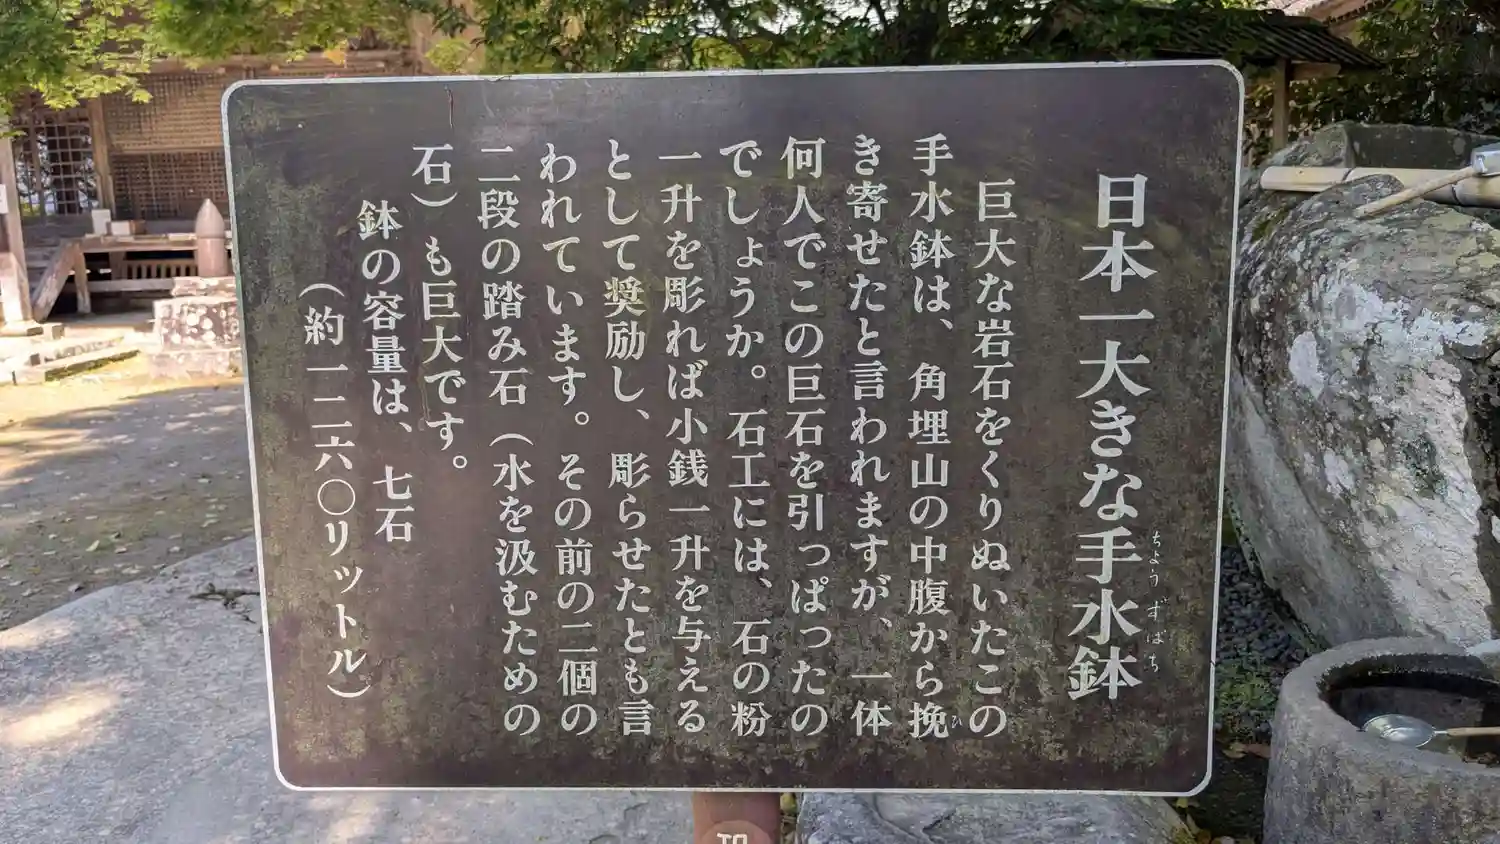 日本一大きな手水鉢
ちょうずばち
巨大な岩石をくりぬいたこの
手水鉢は、角埋山の中腹から挽
ひ
き寄せたと言われますが、一体
何人でこの巨石を引っぱったの
でしょうか。石工には、石の粉
一升を彫れば小銭一升を与える
として奨励し、彫らせたとも言
われています。その前の二個の
二段の踏み石（水を汲むための
石）も巨大です。
鉢の容量は、七石
（約一二六〇リットル）